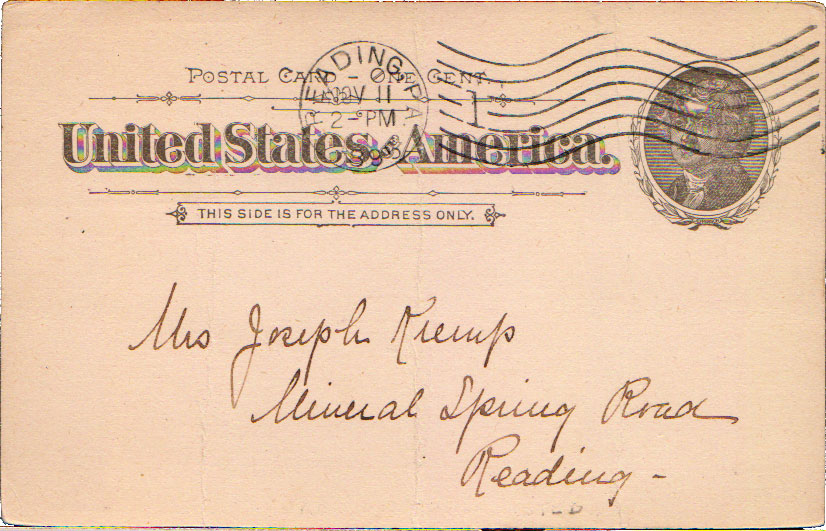 POSTAL CARD – ONE CENT.
READING, PA.
NOV 11
2-PM
1
United States America.
THIS SIDE IS FOR THE ADDRESS ONLY.
Mrs Joseph Kremp
Mineral Spring Road
Reading -